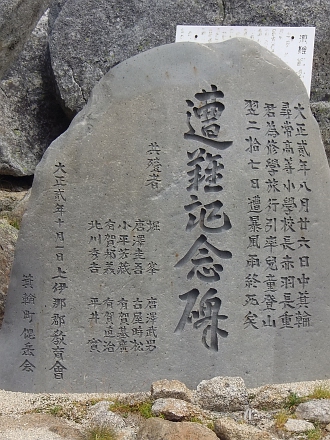 大正貳年八月廿六日中箕輪
尋常高等小學校長赤羽長重
君為修學旅行引率兒童登山
翌二拾七日遭暴風雨終死矣
遭難記念碑
共殪者
堀 峯 唐澤武男
唐澤圭吾 古屋時松
小平芳造 有賀基廣
有賀邦美 有賀直治
北川秀吉 平井 實
大正貳年十月一日上伊那郡教育會
箕輪町